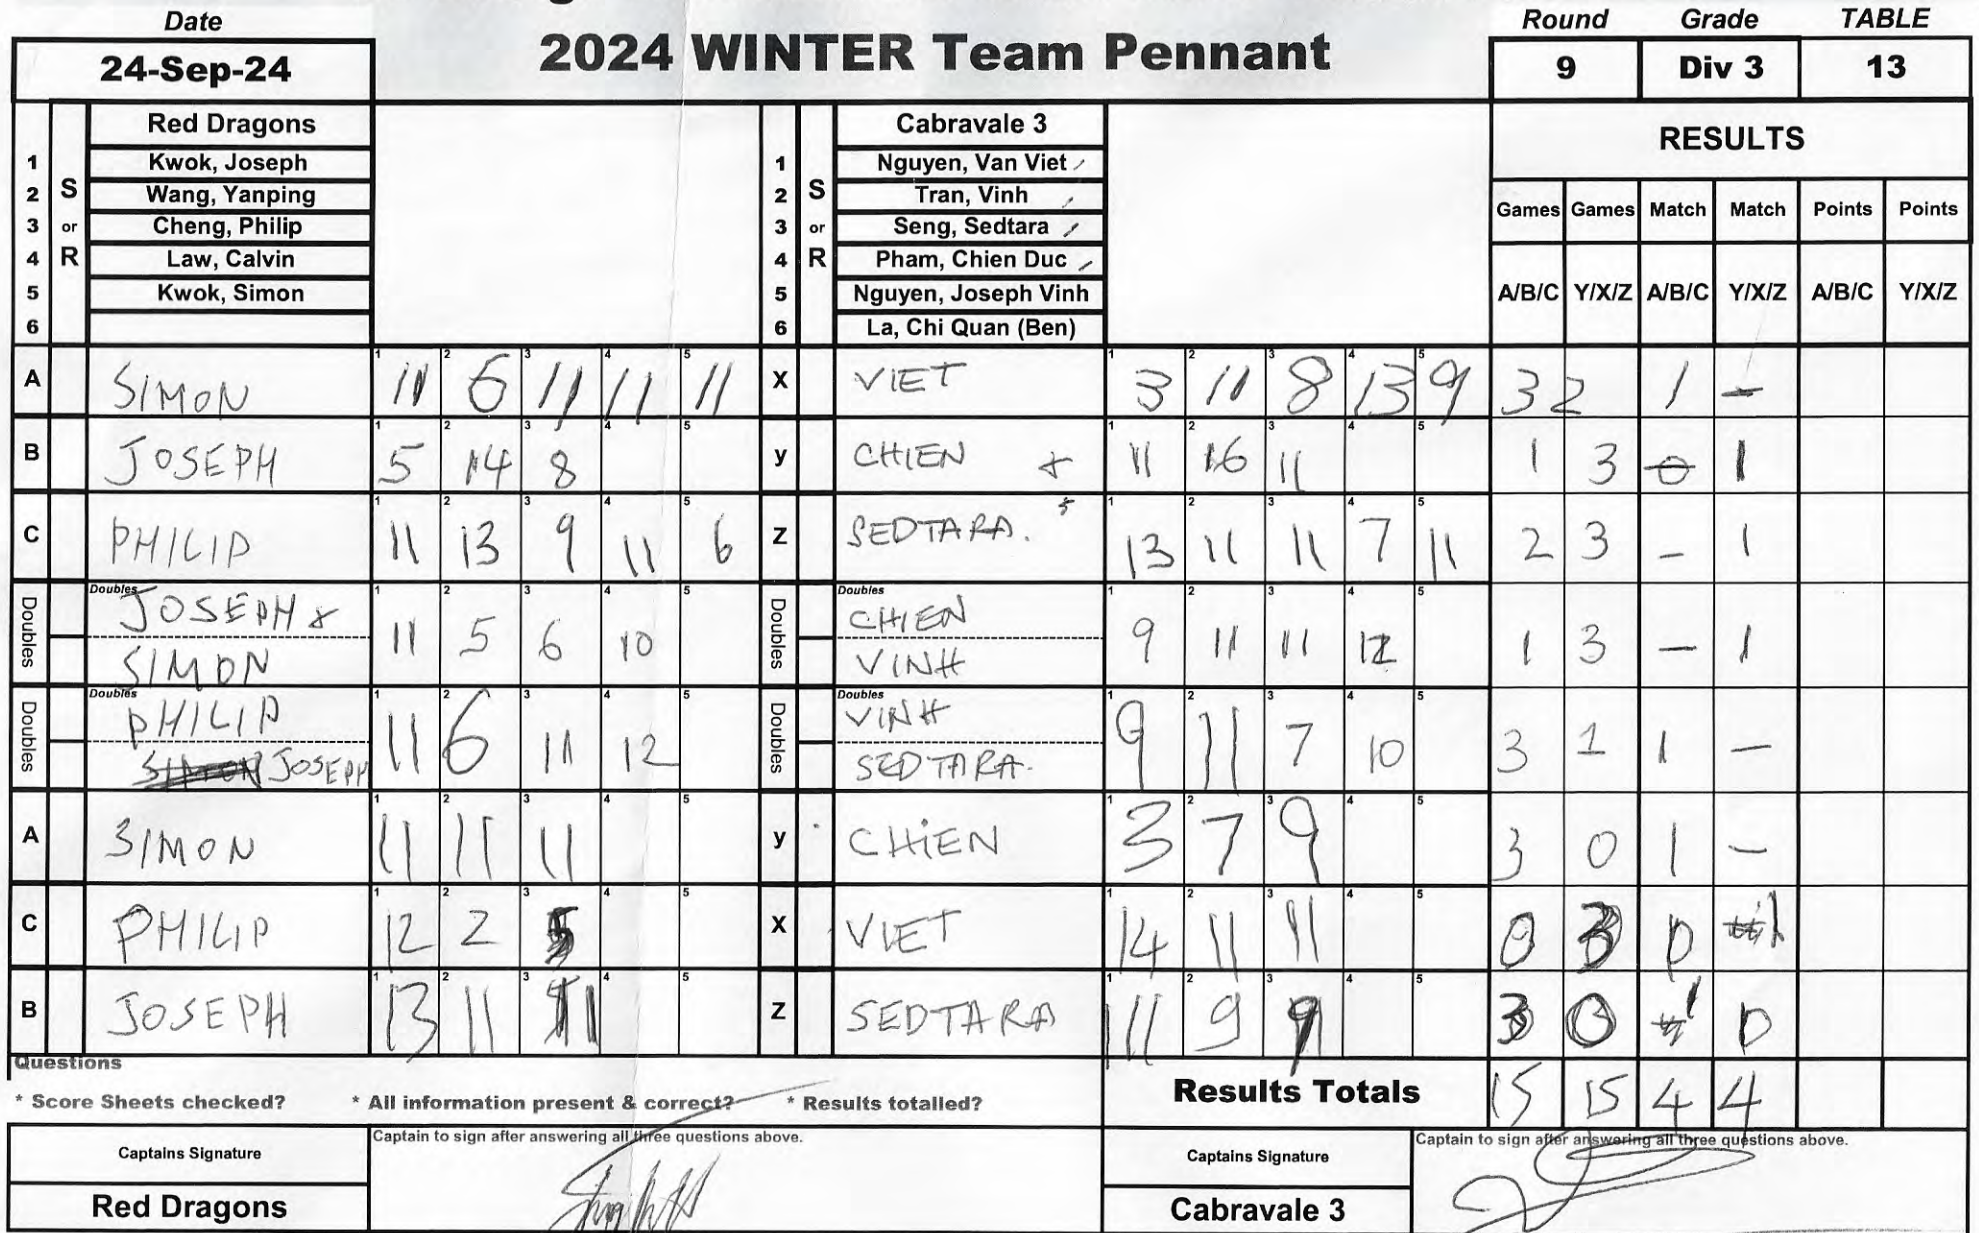 Date
24-Sep-24
2024 WINTER Team Pennant
Round Grade TABLE
9 Div 3 13
S or R
Red Dragons
1 Kwok, Joseph
2 Wang, Yanping
3 Cheng, Philip
4 Law, Calvin
5 Kwok, Simon
6
S or R
Cabravale 3
1 Nguyen, Van Viet
2 Tran, Vinh
3 Seng, Sedtara
4 Pham, Chien Duc
5 Nguyen, Joseph Vinh
6 La, Chi Quan (Ben)
RESULTS
Games Games Match Match Points Points
A/B/C Y/X/Z A/B/C Y/X/Z A/B/C Y/X/Z
A SIMON 11 6 11 11 11 X VIET 3 11 8 13 9 3 2 1 -
B JOSEPH 5 14 8 y CHIEN 11 16 11 1 3 0 1
C PHILIP 11 13 9 11 6 Z SEDTARA. 13 11 11 7 11 2 3 - 1
Doubles JOSEPH & SIMON 11 5 6 10 Doubles CHIEN VINH 9 11 11 12 1 3 - 1
Doubles PHILIP JOSEPH 11 6 11 12 Doubles VINH SEDTARA. 9 11 7 10 3 1 1 -
A SIMON 11 11 11 y CHIEN 3 7 9 3 0 1 -
C PHILIP 12 2 5 X VIET 14 11 11 0 3 0 1
B JOSEPH 13 11 11 Z SEDTARA 11 9 9 3 0 1 0
Questions
* Score Sheets checked? * All information present & correct? * Results totalled?
Results Totals 15 15 4 4
Captains Signature
Captain to sign after answering all three questions above.
Red Dragons
Captains Signature
Captain to sign after answering all three questions above.
Cabravale 3